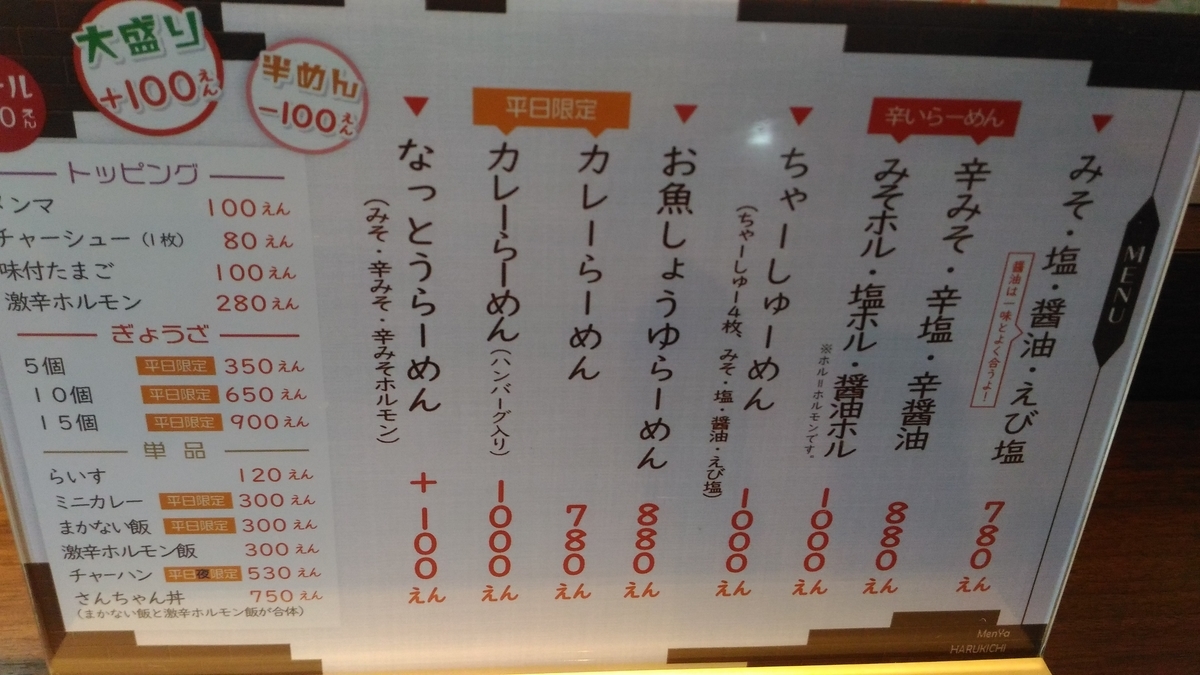 MENU
みそ・塩・醤油・えび塩
780えん
醤油は一味とよく合うよ!
辛いらーめん
辛みそ・辛塩・辛醤油
880えん
みそホル・塩ホル・醤油ホル
※ホル=ホルモンです。
1000えん
ちゃーしゅーめん
(ちゃーしゅー4枚、みそ・塩・醤油・えび塩)
1000えん
お魚しょうゆらーめん
880えん
平日限定
カレーらーめん
780えん
カレーらーめん(ハンバーグ入り)
1000えん
なっとうらーめん
(みそ・辛みそ・辛みそホルモン)
+100えん
半めん
-100えん
大盛り
+100えん
ール
0えん
トッピング
ンマ 100えん
チャーシュー(1枚) 80えん
味付たまご 100えん
激辛ホルモン 280えん
ぎょうざ
5個 平日限定 350えん
10個 平日限定 650えん
15個 平日限定 900えん
単品
らいす 120えん
ミニカレー 平日限定 300えん
まかない飯 平日限定 300えん
激辛ホルモン飯 300えん
チャーハン 平日夜限定 530えん
さんちゃん丼 750えん
(まかない飯と激辛ホルモン飯が合体)
MenYa
HARUKICHI